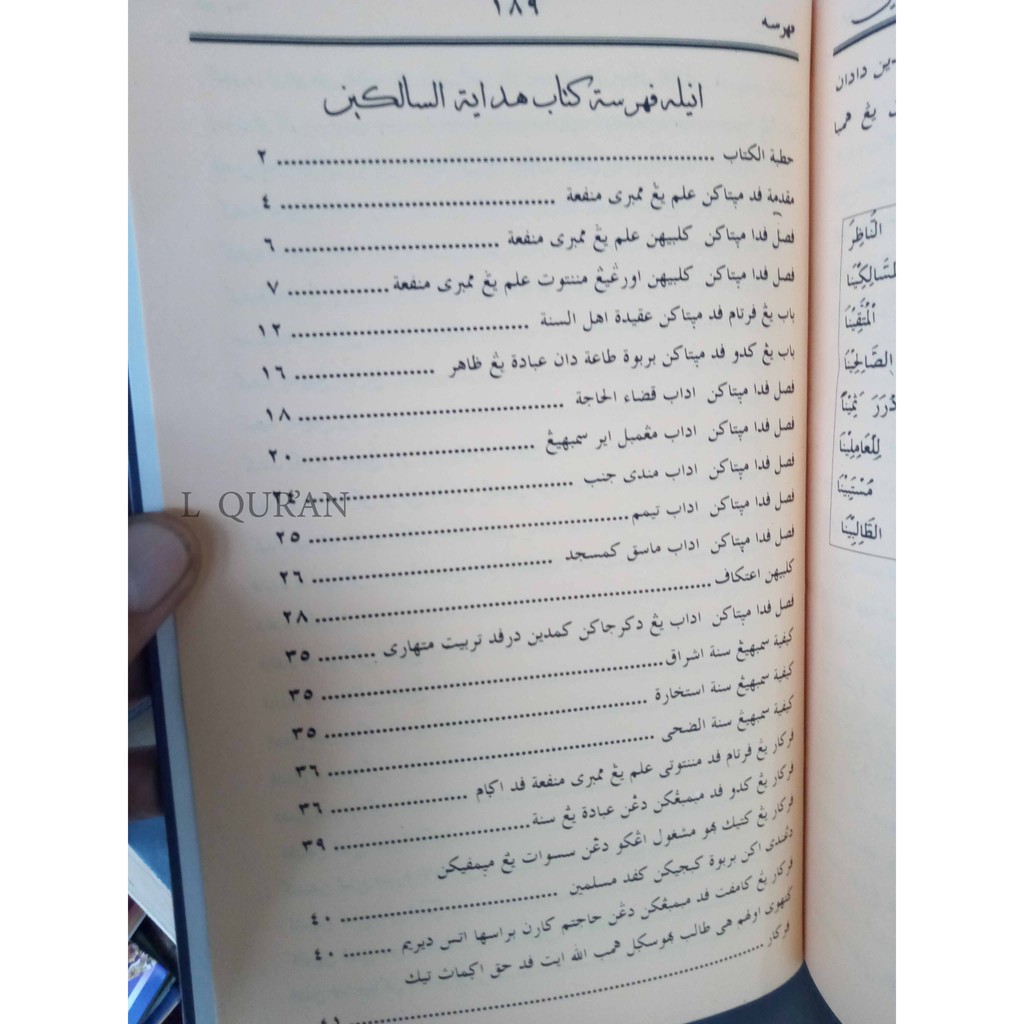 فهرسه
١٨٩
انيله فهرسة كتاب هداية السالكين
خطبة الكتاب ........ ٢
مقدمة فد مپتاكن علم يڠ ممبرى منفعة ........ ٤
فصل فدا مپتاكن كلبيهن علم يڠ ممبرى منفعة ........ ٦
فصل فدا مپتاكن كلبيهن اورڠيڠ مننتوت علم يڠ ممبرى منفعة ........ ٧
باب يڠ فرتام فد مپتاكن عقيدة اهل السنة ........ ١٢
باب يڠ كدو فد مپتاكن بربوة طاعة دان عبادة يڠ ظاهر ........ ١٦
فصل فدا مپتاكن اداب قضاء الحاجة ........ ١٨
فصل فدا مپتاكن اداب مڠمبل اير سمبهيڠ ........ ٢٠
فصل فدا مپتاكن اداب مندى جنب ........ ٢٤
فصل فدا مپتاكن اداب تيمم ........ ٢٥
فصل فدا مپتاكن اداب ماسق كمسجد ........ ٢٦
كلبيهن اعتكاف ........ ٢٨
فصل فدا مپتاكن اداب يڠ دكرجاكن كمدين درفد تربيت متهارى ........ ٣٥
كيفية سمبهيڠ سنة اشراق ........ ٣٥
كيفية سمبهيڠ سنة استخارة ........ ٣٥
كيفية سمبهيڠ سنة الضحى ........ ٣٦
فركار يڠ فرتام فد مننتوتى علم يڠ ممبرى منفعة فد اݢام ........ ٣٦
فركار يڠ كدو فد ميمبڠكن دڠن عبادة يڠ سنة ........ ٣٩
فركار يڠ كتيك بهو مشغول اڠكو دڠن سسوات يڠ ميمفيكن
اكن بربوة كبجيكن كفد مسلمين ........ ٤٠
فركار يڠ كامفت فد ميمبڠكن دڠن حاجتم كارن براسها اتس ديريم ........ ٤٠
كتهوى اولهم هى طالب بهوسكل همب الله ايت فد حق اݢمات تيك
فركار ........ ٤١
L QUR'AN
دين دادان
يڠ همبا
الناظر
للسالكينا
المتقينا
الصالحينا
درر ثمينا
للعاملينا
مستبينا
الطالبينا